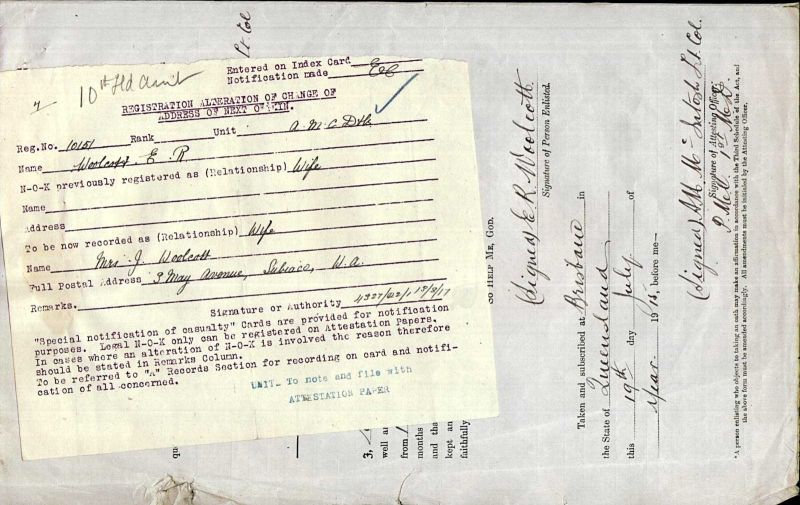 Lt. Col
10th Fld Amb
Entered on Index Card
Notification made
REGISTRATION ALTERATION OF CHANGE OF
ADDRESS OF NEXT OF KIN.
Reg.No. 10151 Rank Unit A.M.C Dtls
Name Woolcott E. R
N-O-K previously registered as (Relationship) Wife
Name
Address
To be now recorded as (Relationship) Wife
Name Mrs J. Woolcott
Full Postal Address 3 May Avenue, Subiaco, W.A.
Remarks.
Signature or Authority
"Special notification of casualty" Cards are provided for notification
purposes. Legal N-O-K only can be registered on Attestation Papers.
In cases where an alteration of N-O-K is involved the reason therefore
should be stated in Remarks Column.
To be referred to "A" Records Section for recording on card and notifi-
cation of all concerned.
UNIT. To note and file with
ATTESTATION PAPER
qu
3,
well a
from
months
and tha
kept an
faithfully
SO HELP ME, GOD.
(Signed) E. R. Woolcott.
Signature of Person Enlisted.
Taken and subscribed at Brisbane in
the State of Queensland
this 19th day July of
Year 1915, before me—
(Signed) A.M. McIntosh Lt. Col.
Signature of Attesting Officer.
P.M.O. 1st M.D.
*A person enlisting who objects to taking an oath may make an affirmation in accordance with the Third Schedule of the Act, and
the above form must be amended accordingly. All amendments must be initialed by the Attesting Officer.